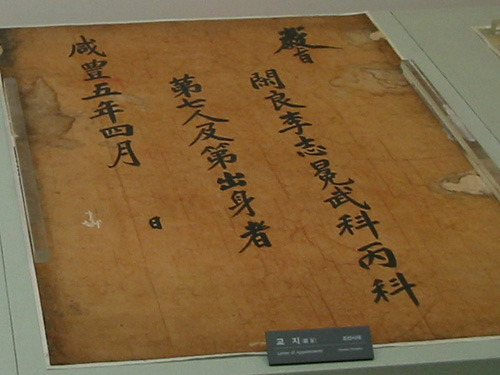 敎旨
閑良李志冕武科丙科
第七人及第出身者
咸豐五年四月 日
교 지(敎旨)
Letter of Appointment